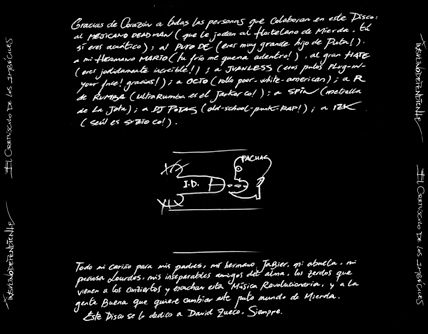 Gracias de Corazón a todas las personas que colaboran en este Disco:
al MEXICANO DEADMAN (que le jodan al flautelano de Mierda, tú
sí eres auténtico); al PUTO DE (eres muy grande hijo de Puta!).
a mi Hermano MARIO (ha frío me quema adentro!). al gran HATE
(eres jodidamente increíble!!); a JUANLESS (eres puto! Plug-in-
your free! gracias!); a OCTO (rollo poor-white-american); a R
de RUMBA (ultraRumba es el Jaharco!); a SPIN (medalla
de la Jota); a DJ POTAS (old-school-punk-RAP!); a
El Crepúsculo de las Imbéciles
El Crepúsculo de las Imbéciles
XIX
XIX
I.D.
PACHAS
Todo mi cariño para mis padres, mi hermano Javier, mi abuela, mi
preciosa Lourdes, mis inseparables amigos del alma, los zerdos que
vienen a los conciertos y escuchan esta Música Revolucionaria, y a la
gente Buena que quiere cambiar este puto mundo de Mierda.
Este Disco se lo dedico a David Zueco. Siempre.